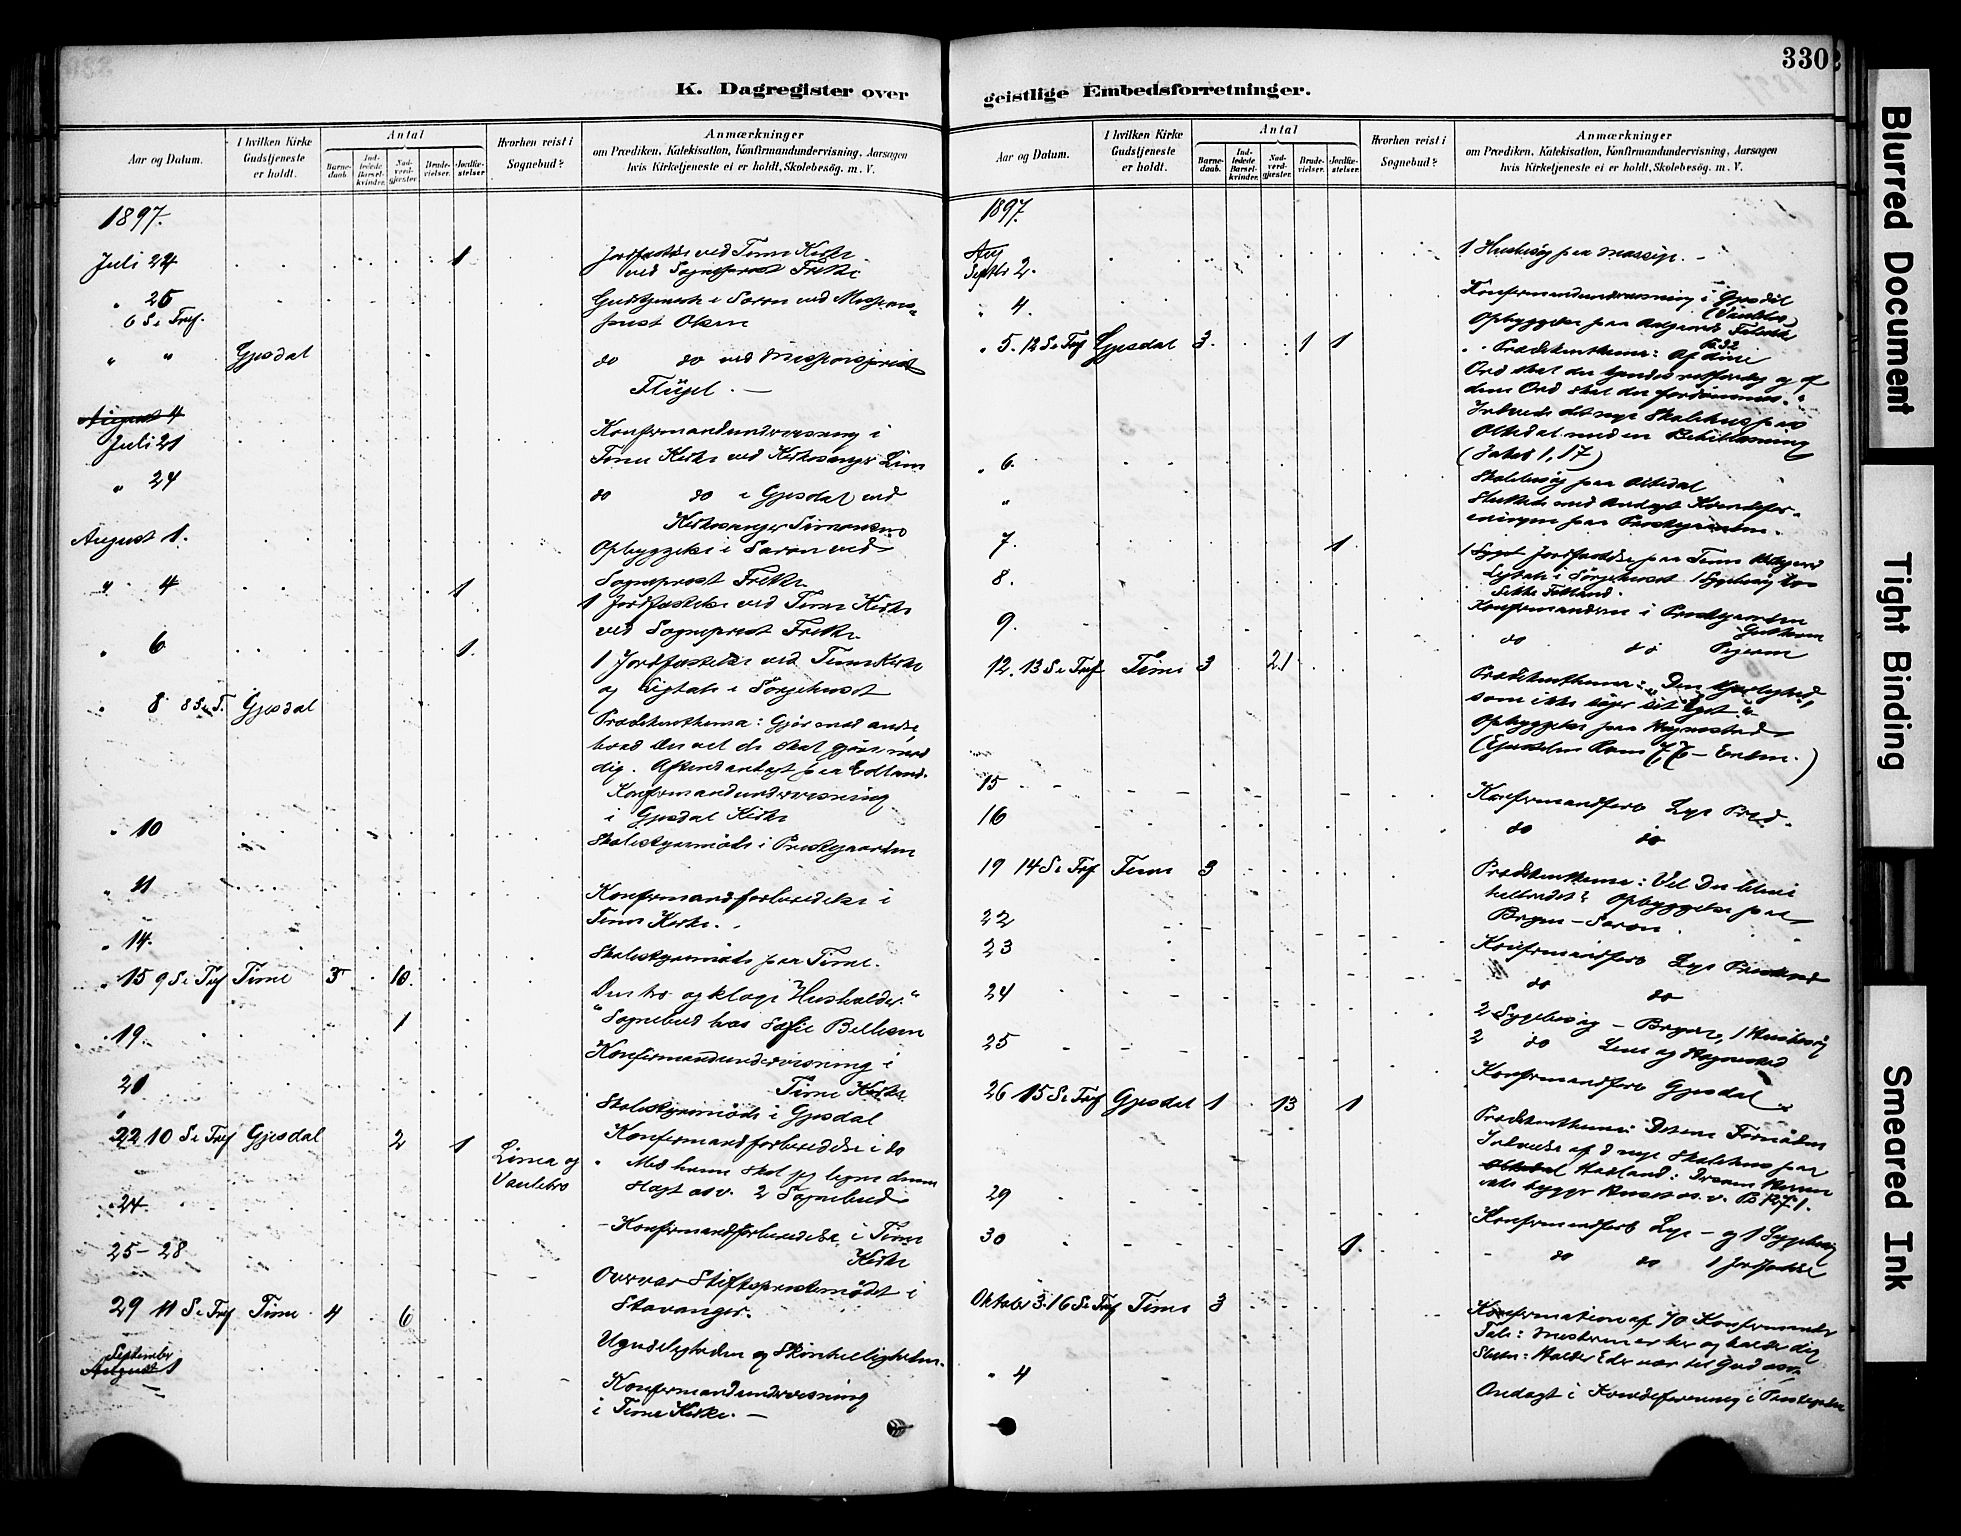 330
K. Dagregister over
Aar og Datum.
I hvilken Kirke Gudstjeneste er holdt.
Antal
Barnedaab.
Indledede Barselkvinder.
Nadverdgjester.
Brudevielser.
Jordfæstelser.
Hvorhen reist i Sognebud?
Anmærkninger
om Prædiken, Katekisation, Konfirmandundervisning, Aarsagen
hvis Kirketjeneste ei er holdt, Skolebesøg. m. V.
1897.
Juli 22 1 Jordfæstelse ved Time Kirke
ved Sogneprest
" 25 Gudstjeneste i Saron ved Missions-
6 S. e Tref. prest Olsen
" " Gjesdal do do ved Missionsprest
Flügel. —
August 4
Juli 21 Konfirmandundervisning i
Time Kirke ved Kirkesanger Lima
" 24 do do i Gjesdal ved
Kirkesanger Simonsen
August 1. Opbyggelse i Saron ved
Sogneprest
" 4 1 1 Jordfæstelse ved Time Kirke
ved Sogneprest
" 6 1 1 Jordfæstelse ved Time Kirke
og Ligtale i Sørgehuset
" 8 8 S. e T. Gjesdal Prædikenthema: Gjør mod andre
hvad Du vil de skal gjøre mod
dig. Aftenandagt paa Edland.
Konfirmandundervisning
i Gjesdal Kirke
" 10 Skolestyremøde i Prestgaarden
" 11 Konfirmandforberedelse i
Time Kirke.
" 14. Skolestyremøde paa Time.
" 15 9 S. e Tref Time 3 10. Den tro og kloge Husholder."
" 19. 1 Sognebud hos Sofie Bellesen
Konfirmandundervisning i
Time Kirke
21 Skolestyremøde i Gjesdal
22 10 S. e Tref Gjesdal 2 1 Lima og Konfirmandforberedelse i do
Vaulebro Med hvem skal jeg ligne denne
Slægt osv. 2 Sognebud
" 24 – Konfirmandforberedelse i Time
Kirke
25–28 Overvar Stiftsprestemødet i
Stavanger.
29 11 S. e Tref Time 4 6 Ugudeligheden og Skinhelligheden.
September
August 1 Konfirmandundervisning
i Time Kirke. —
geistlige Embedsforretninger.
Aar og Datum.
I hvilken Kirke Gudstjeneste er holdt.
Antal
Barnedaab.
Indledede Barselkvinder.
Nadverdgjester.
Brudevielser.
Jordfæstelser.
Hvorhen reist i Sognebud?
Anmærkninger
om Prædiken, Katekisation, Konfirmandundervisning, Aarsagen
hvis Kirketjeneste ei er holdt, Skolebesøg. m. V.
1897.
Aug
Septbr 2. 1 Husbesøg paa Mossige. –
" 4 Konfirmandundervisning i Gjesdal
Opbyggelse paa
" 5. 12 S. e Tref Gjesdal 3. 1 1 Prædikenthema: Af dine
Ord skal du kjendes retfærdig og af
dine Ord skal du fordømmes."
Indviede det nye Skolehus paa
Oltedal med en Bibellæsning
(Jakob 1, 17)
" 6. Skolebesøg paa Oltedal
" Sluttede med Andagt Kvindefor-
eningen paa Prestgaarden.
7. 1 1 Jordfæstelse paa Time
8. Ligtale i Sørgehuset 1 Sygebesøg hos
9. Konfirmanderne i Prestgaarden
do do
12. 13 S. e Tref Time 3 21 Prædikenthema: "Den Kjærlighed,
som ikke søger sit Eget"
Opbyggelse paa Hognestad
15 Konfirmandforb Lye Præd.
16 do do
19 14 S. e Tref Time 3 Prædikenthema: Vil Du blive
helbredet? Opbyggelse paa
22 Bryne – Saron.
23 Konfirmandforb Lye
24 do do
2 Sygebesøg – Bryne, 1 Husbesøg
25 2 do Lime og Hognestad
Konfirmandforb Gjesdal
26 15 S. e Tref Gjesdal 1 13 1 Prædikenthema: Det ene Fornødne
Indviede af d nye Skolehus paa
Oltedal Haaland: Dersom Herren
ikke bygger Huset o. s. v.
29 Konfirmandforb Lye – og 1 Sygebesøg
30 1. – do do 1 Jordfæstelse
Oktober 3. 16 S. e Tref Time 3 Konfirmation af 70 Konfirmander
Tale: Mesteren er her og kalder dig
" 4 Andagt i Kvindeforening i
Blurred Document
Tight Binding
Smeared Ink